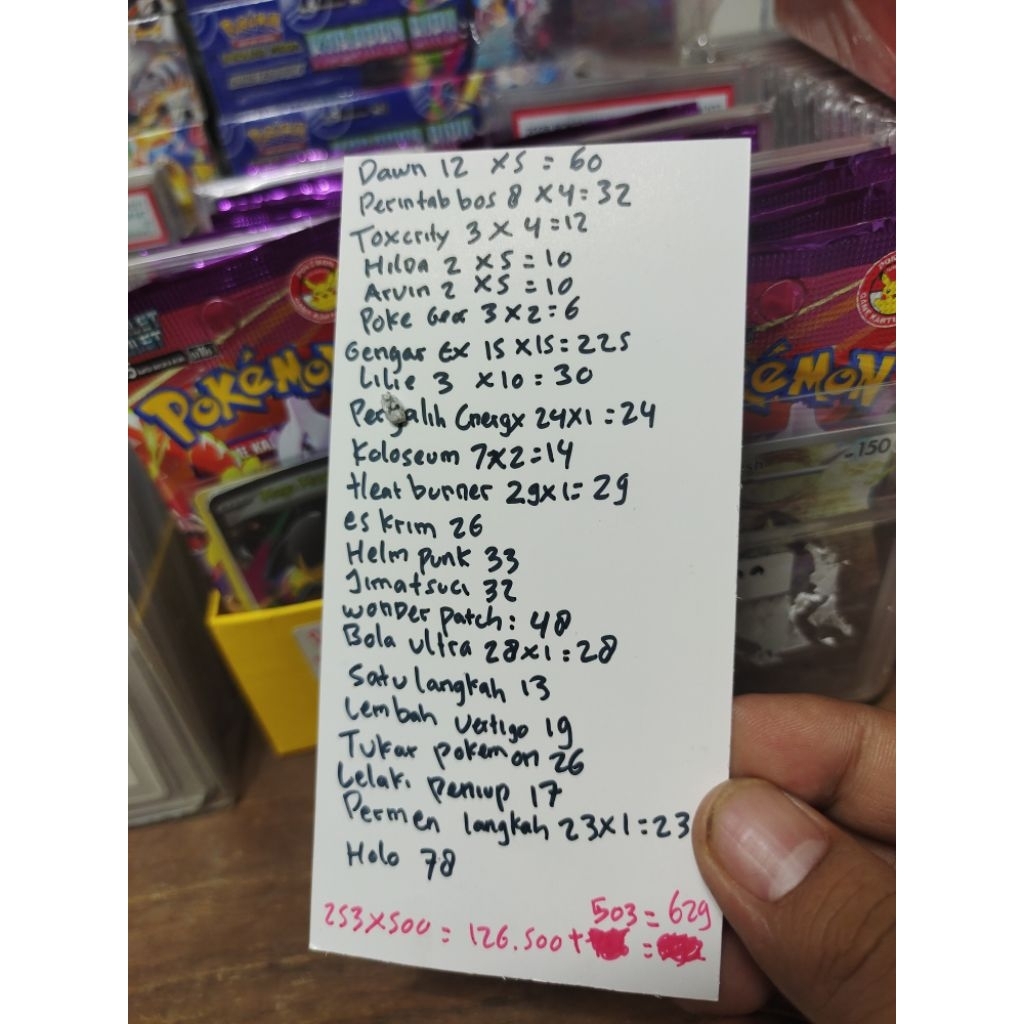 Dawn 12 x5 = 60
Perintah bos 8 x 4 = 32
Toxcrity 3 x 4 = 12
Hilda 2 x5 = 10
Arvin 2 x5 = 10
Poke Gear 3 x 2 = 6
Gengar Ex 15 x15 = 225
Lilie 3 x10 = 30
Pengalih Energy 24x1 = 24
Koloseum 7x2 = 14
Heat burner 29x1 = 29
es krim 26
Helm punk 33
Jimat suci 32
wonder patch : 48
Bola ultra 28x1 = 28
Satu langkah 13
Lembah vertigo 19
Tukar pokemon 26
Lelaki peniup 17
Permen langkah 23x1 = 23
Holo 78
503 = 629
253x500 = 126.500 +
POKéMON
-150